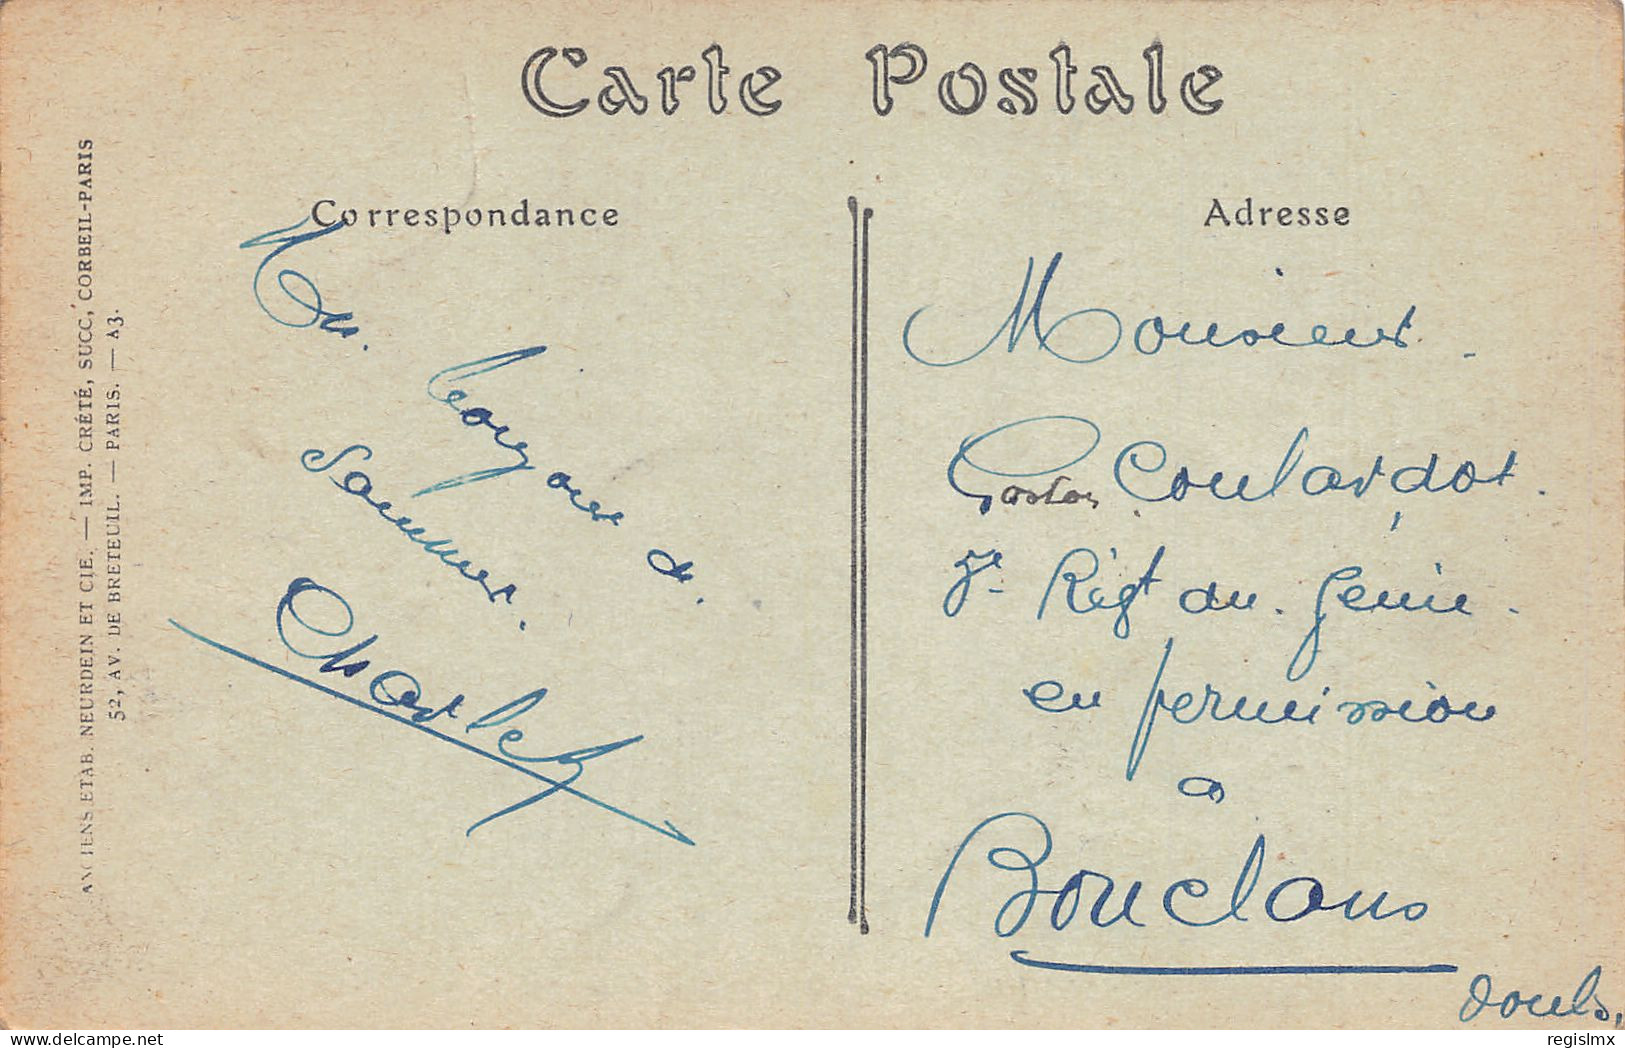 Carte Postale
Correspondance
Un bonjour de
Saumur.
Adresse
Monsieur.
Gaston Coulardot.
7e Régt du Génie.
en permission
à
Bouclans
Doubs,
ANCIENS ETAB. NEURDEIN ET CIE. — IMP. CRÉTÉ, SUCC, CORBEIL-PARIS
52, AV. DE BRETEUIL. — PARIS. — A3.
delcampe.net
regislmx